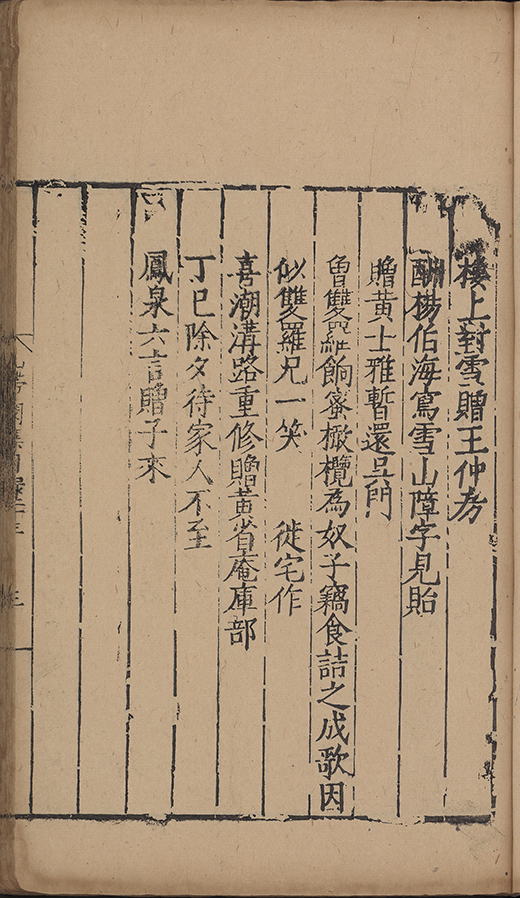 樓上對雪贈王仲房
酬楊伯海寫雪山障字見貽
贈黄士雅暫還吴門
魯雙羅餉蜜橄欖為奴子竊食詰之成歌因
似雙羅兄一笑 徙宅作
喜潮溝路重修贈黄省庵庫部
丁巳除夕待家人不至
鳳泉六言贈子來